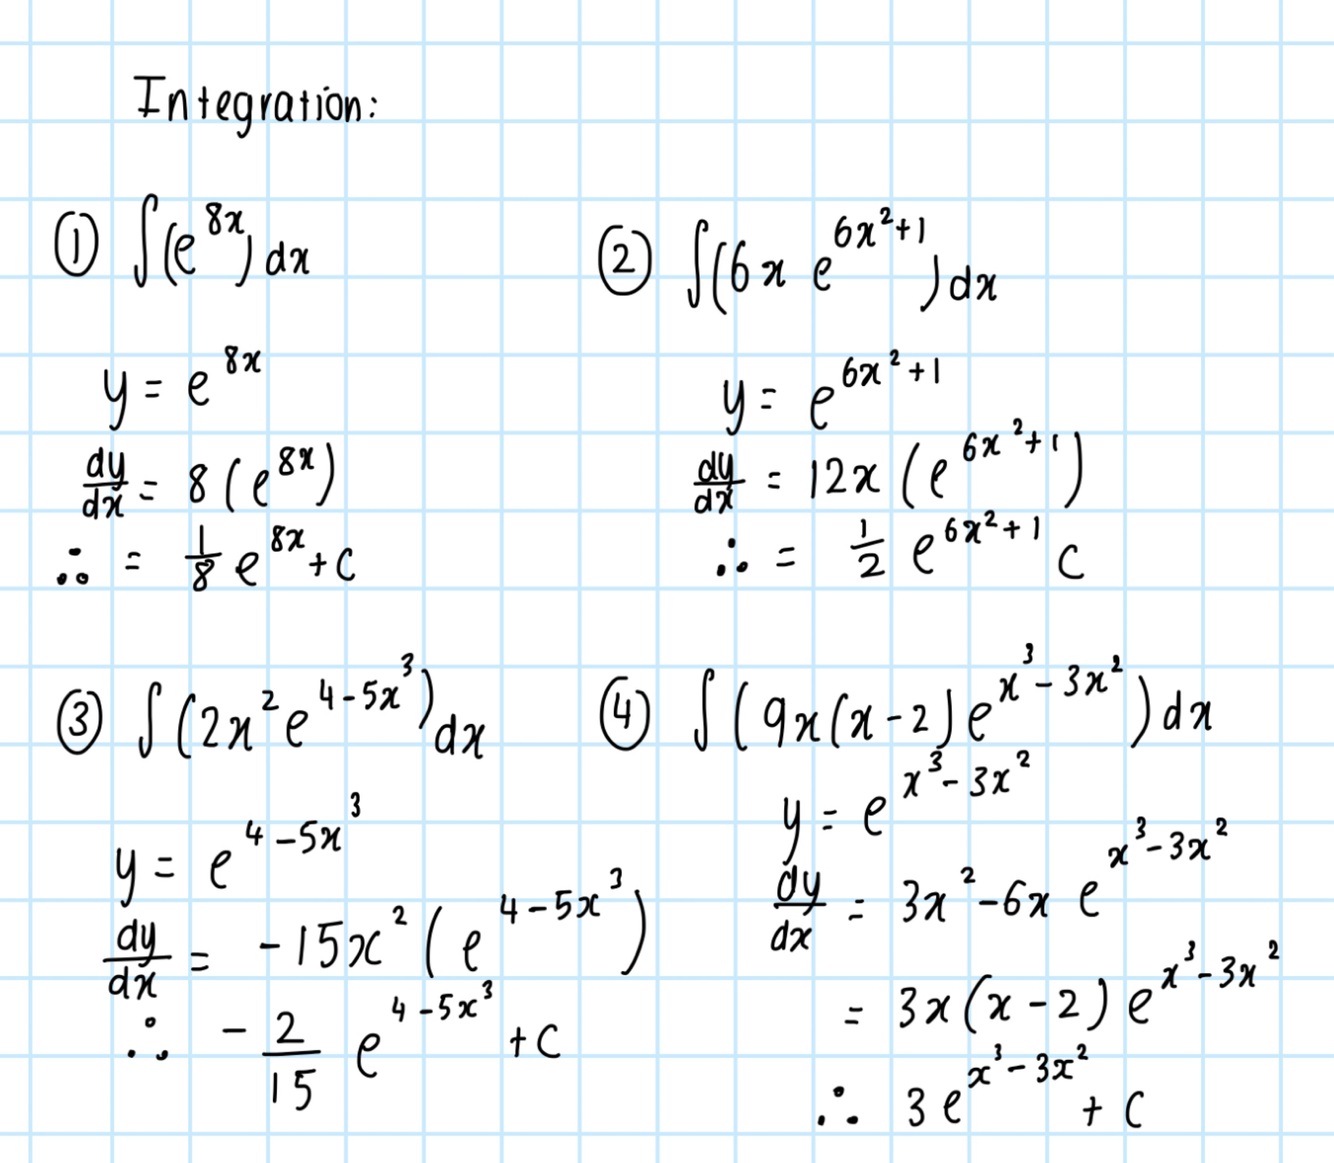 Integration:
① ∫(e^{8x})dx
y = e^{8x}
dy/dx = 8(e^{8x})
∴ = 1/8 e^{8x} + c
② ∫(6x e^{6x²+1})dx
y = e^{6x²+1}
dy/dx = 12x(e^{6x²+1})
∴ = 1/2 e^{6x²+1} c
③ ∫(2x²e^{4-5x³})dx
y = e^{4-5x³}
dy/dx = -15x²(e^{4-5x³})
∴ -2/15 e^{4-5x³} + c
④ ∫(9x(x-2)e^{x³-3x²})dx
y = e^{x³-3x²}
dy/dx = 3x²-6x e^{x³-3x²}
= 3x(x-2)e^{x³-3x²}
∴ 3e^{x³-3x²} + c